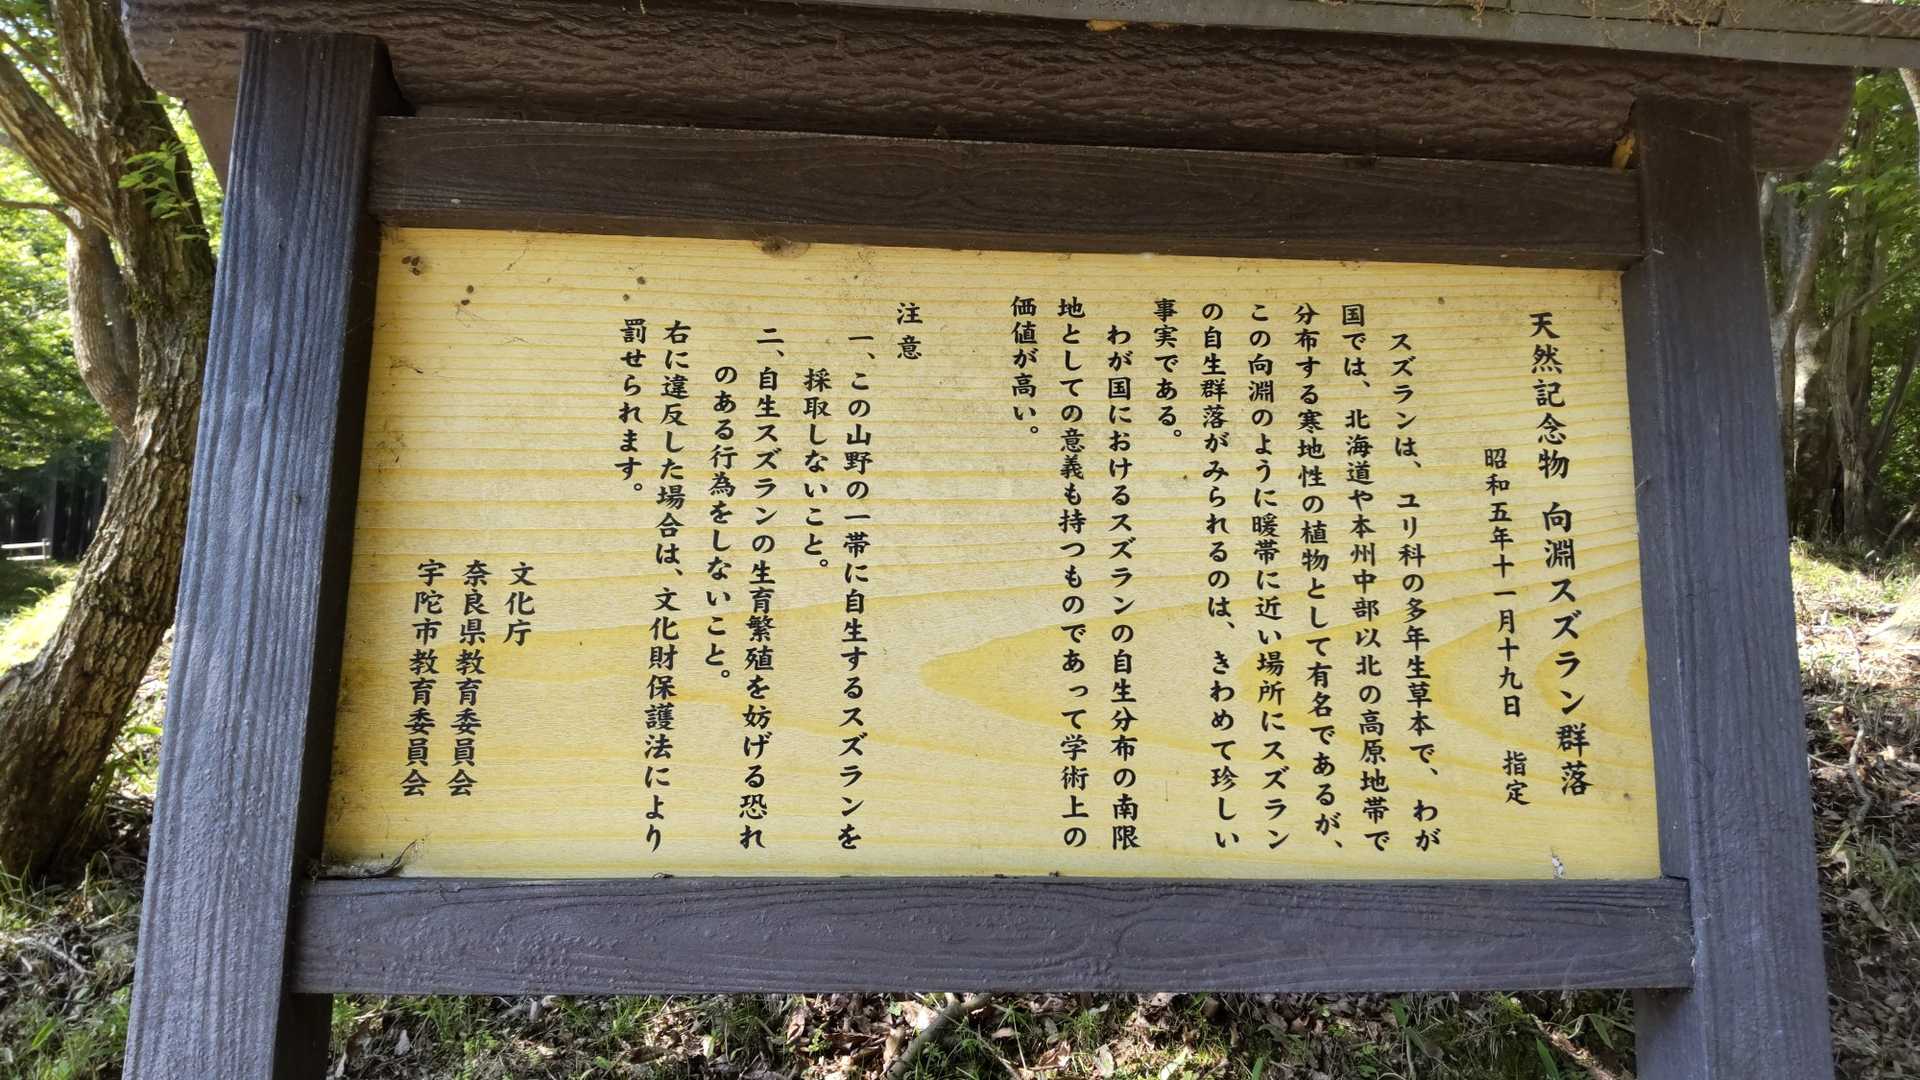 天然記念物 向淵スズラン群落
昭和五年十一月十九日 指定
スズランは、ユリ科の多年生草本で、わが
国では、北海道や本州中部以北の高原地帯で
分布する寒地性の植物として有名であるが、
この向淵のように暖帯に近い場所にスズラン
の自生群落がみられるのは、きわめて珍しい
事実である。
わが国におけるスズランの自生分布の南限
地としての意義も持つものであって学術上の
価値が高い。
注意
一、この山野の一帯に自生するスズランを
採取しないこと。
二、自生スズランの生育繁殖を妨げる恐れ
のある行為をしないこと。
右に違反した場合は、文化財保護法により
罰せられます。
文化庁
奈良県教育委員会
宇陀市教育委員会